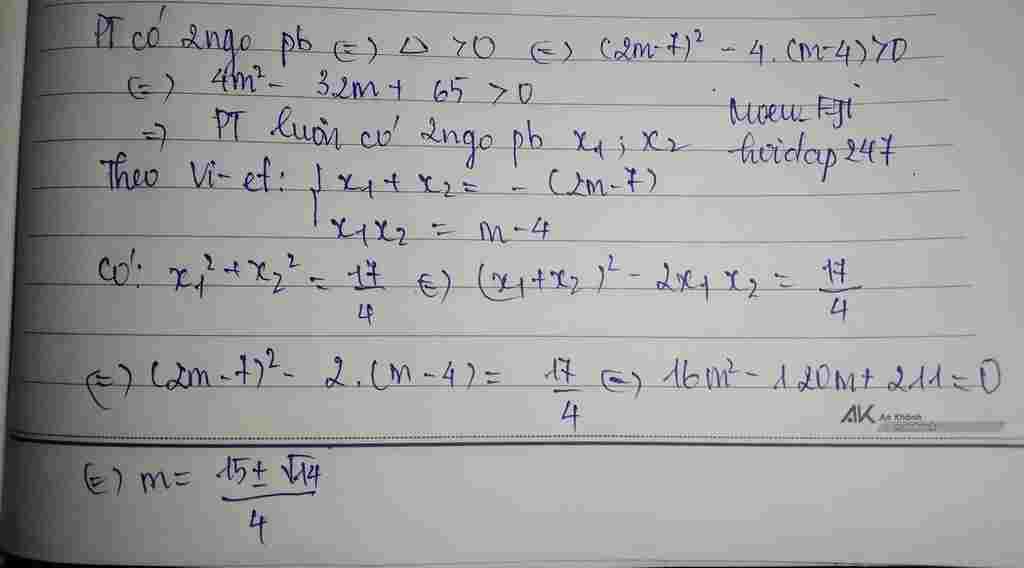 PT có 2ngo pb (=) Δ >0 (=) (2m-7)² - 4.(m-4)>0
(=) 4m² - 32m + 65 >0
=) PT luôn có 2ngo pb x₁ ; x₂
Moew Fji
hoidap247
Theo Vi-et: { x₁ + x₂ = - (2m-7)
x₁x₂ = m-4
Có: x₁² + x₂² = 17/4 (=) (x₁+x₂)² - 2x₁x₂ = 17/4
(=) (2m-7)² - 2.(m-4) = 17/4 (=) 16m² - 120m + 211 = 0
AK An Khánh
(=) m = (15 ± √14)/4